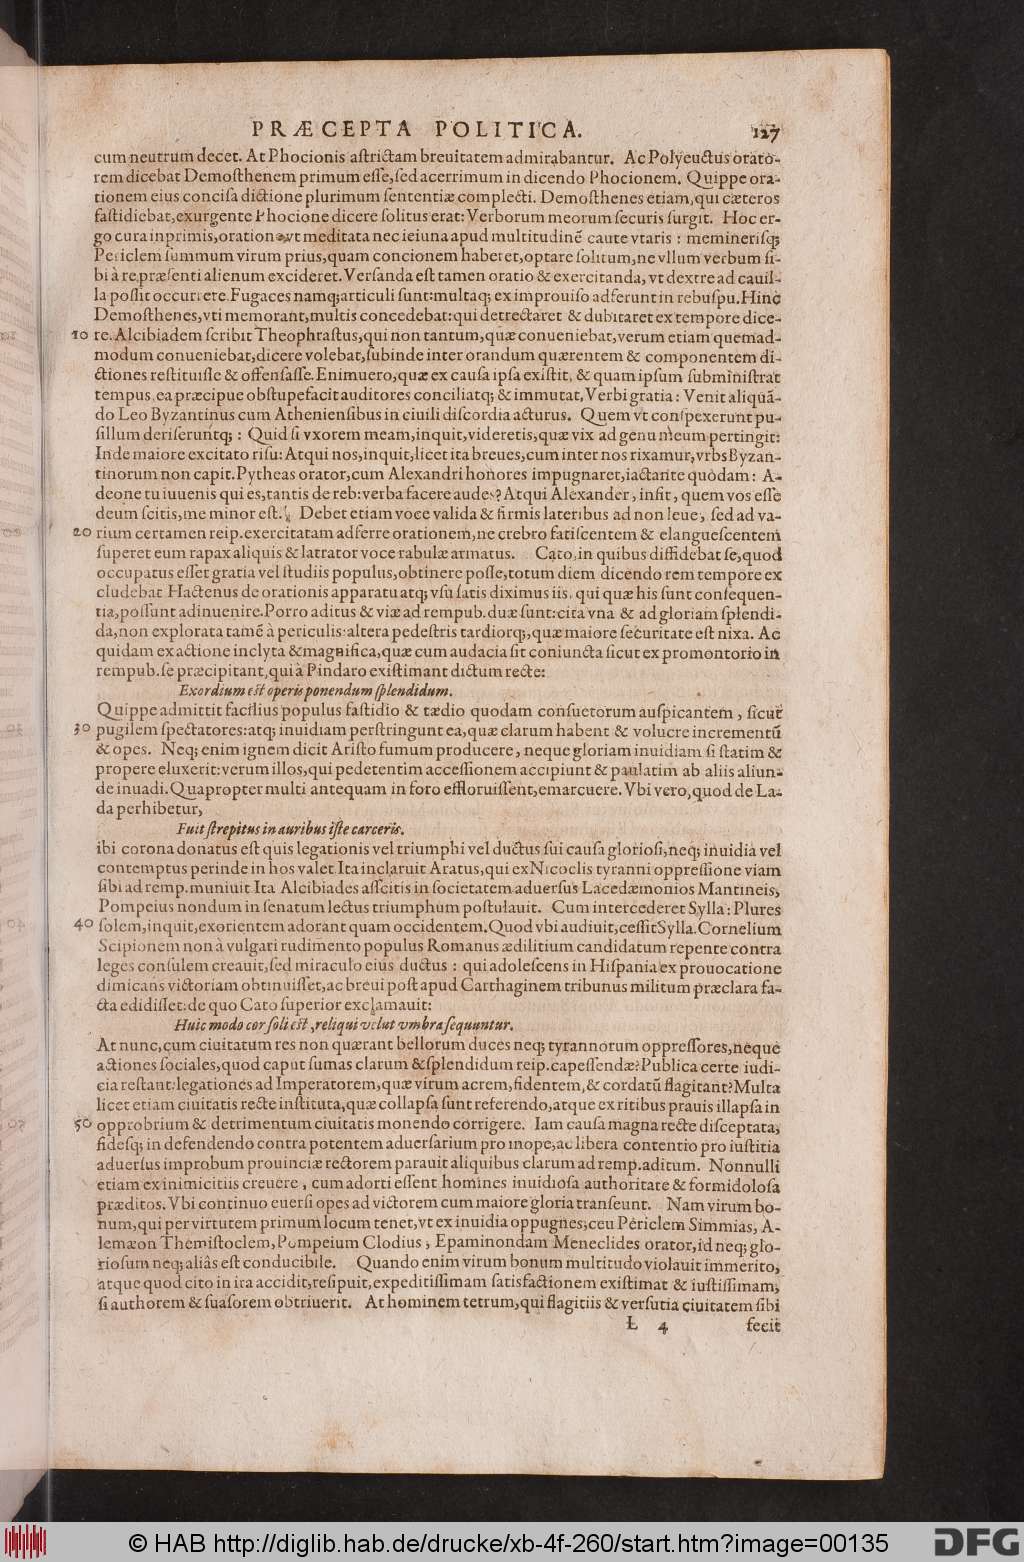 PRÆCEPTA POLITICA. 127
cum neutrum decet. At Phocionis aſtrictam breuitatem admirabantur. Ac Polyeuctus orato-
rem dicebat Demoſthenem primum eſſe, ſed acerrimum in dicendo Phocionem. Quippe ora-
tionem eius conciſa dictione plurimum ſententiæ complecti. Demoſthenes etiam, qui cæteros
faſtidiebat, exurgente Phocione dicere ſolitus erat: Verborum meorum ſecuris ſurgit. Hoc er-
go cura inprimis, oratione vt meditata nec ieiuna apud multitudinẽ caute vtaris : memineriſq;
Periclem ſummum virum prius, quam concionem haberet, optare ſolitum, ne vllum verbum ſi-
bi à re præſenti alienum excideret. Verſanda eſt tamen oratio & exercitanda, vt dextre ad cauil-
la poſſit occurrere. Fugaces namq; articuli ſunt: multaq; ex improuiſo adferunt in rebuſpu. Hinc
Demoſthenes, vti memorant, multis concedebat: qui detrectaret & dubitaret ex tempore dice-
10 re. Alcibiadem ſcribit Theophraſtus, qui non tantum, quæ conueniebat, verum etiam quemad-
modum conueniebat, dicere volebat, ſubinde inter orandum quærentem & componentem di-
ctiones reſtituiſſe & offenſaſſe. Enimuero, quæ ex cauſa ipſa exiſtit, & quam ipſum ſubminiſtrat
tempus, ea præcipue obſtupefacit auditores conciliatq; & immutat, Verbi gratia : Venit aliquã-
do Leo Byzantinus cum Athenienſibus in ciuili diſcordia acturus. Quem vt conſpexerunt pu-
ſillum deriſeruntq; : Quid ſi vxorem meam, inquit, videretis, quæ vix ad genu meum pertingit:
Inde maiore excitato riſu: Atqui nos, inquit, licet ita breues, cum inter nos rixamur, vrbs Byzan-
tinorum non capit. Pytheas orator, cum Alexandri honores impugnaret, iactante quodam : A-
deone tu iuuenis qui es, tantis de reb: verba facere audes? Atqui Alexander, infit, quem vos eſſe
deum ſcitis, me minor eſt. Debet etiam voce valida & firmis lateribus ad non leue, ſed ad va-
20 rium certamen reip. exercitatam adferre orationem, ne crebro fatiſcentem & elangueſcentem
ſuperet eum rapax aliquis & latrator voce rabulæ armatus. Cato, in quibus diffidebat ſe, quod
occupatus eſſet gratia vel ſtudiis populus, obtinere poſſe, totum diem dicendo rem tempore ex
cludebat Hactenus de orationis apparatu atq; vſu ſatis diximus iis, qui quæ his ſunt conſequen-
tia, poſſunt adinuenire. Porro aditus & viæ ad rempub. duæ ſunt: cita vna & ad gloriam ſplendi-
da, non explorata tamẽ à periculis: altera pedeſtris tardiorq;, quæ maiore ſecuritate eſt nixa. Ac
quidam ex actione inclyta & magnifica, quæ cum audacia ſit coniuncta ſicut ex promontorio in
rempub. ſe præcipitant, qui à Pindaro exiſtimant dictum recte:
Exordium eſt operis ponendum ſplendidum.
Quippe admittit facilius populus faſtidio & tædio quodam conſuetorum auſpicantem, ſicut
30 pugilem ſpectatores: atq; inuidiam perſtringunt ea, quæ clarum habent & volucre incrementũ
& opes. Neq; enim ignem dicit Ariſto fumum producere, neque gloriam inuidiam ſi ſtatim &
propere eluxerit: verum illos, qui pedetentim acceſſionem accipiunt & paulatim ab aliis aliun-
de inuadi. Quapropter multi antequam in foro effloruiſſent, emarcuere. Vbi vero, quod de La-
da perhibetur,
Fuit ſtrepitus in auribus iſte carceris.
ibi corona donatus eſt quis legationis vel triumphi vel ductus ſui cauſa glorioſi, neq; inuidia vel
contemptus perinde in hos valet Ita inclaruit Aratus, qui ex Nicoclis tyranni oppreſſione viam
ſibi ad remp. muniuit Ita Alcibiades aſſcitis in ſocietatem aduerſus Lacedæmonios Mantineis,
Pompeius nondum in ſenatum lectus triumphum poſtulauit. Cum intercederet Sylla: Plures
40 ſolem, inquit, exorientem adorant quam occidentem. Quod vbi audiuit, ceſſit Sylla. Cornelium
Scipionem non à vulgari rudimento populus Romanus ædilitium candidatum repente contra
leges conſulem creauit, ſed miraculo eius ductus : qui adoleſcens in Hiſpania ex prouocatione
dimicans victoriam obtinuiſſet, ac breui poſt apud Carthaginem tribunus militum præclara fa-
cta edidiſſet: de quo Cato ſuperior exclamauit:
Huic modo cor ſoli eſt, reliqui velut vmbra ſequuntur.
At nunc, cum ciuitatum res non quærant bellorum duces neq; tyrannorum oppreſſores, neque
actiones ſociales, quod caput ſumas clarum & ſplendidum reip. capeſſendæ? Publica certe iudi-
cia reſtant: legationes ad Imperatorem, quæ virum acrem, fidentem, & cordatũ flagitant? Multa
licet etiam ciuitatis recte inſtituta, quæ collapſa ſunt referendo, atque ex ritibus prauis illapſa in
50 opprobrium & detrimentum ciuitatis monendo corrigere. Iam cauſa magna recte diſceptata,
fideſq; in defendendo contra potentem aduerſarium pro inope, ac libera contentio pro iuſtitia
aduerſus improbum prouinciæ rectorem parauit aliquibus clarum ad remp. aditum. Nonnulli
etiam ex inimicitiis creuere, cum adorti eſſent homines inuidioſa authoritate & formidoloſa
præditos. Vbi continuo euerſi opes ad victorem cum maiore gloria tranſeunt. Nam virum bo-
num, qui per virtutem primum locum tenet, vt ex inuidia oppugnes, ceu Periclem Simmias, A-
lemæon Themiſtoclem, Pompeium Clodius, Epaminondam Meneclides orator, id neq; glo-
rioſum neq; aliâs eſt conducibile. Quando enim virum bonum multitudo violauit immerito,
atque quod cito in ira accidit, reſipuit, expeditiſſimam ſatisfactionem exiſtimat & iuſtiſſimam,
ſi authorem & ſuaſorem obtriuerit. At hominem tetrum, qui flagitiis & verſutia ciuitatem ſibi
L 4 fecit
© HAB http://diglib.hab.de/drucke/xb-4f-260/start.htm?image=00135
DFG